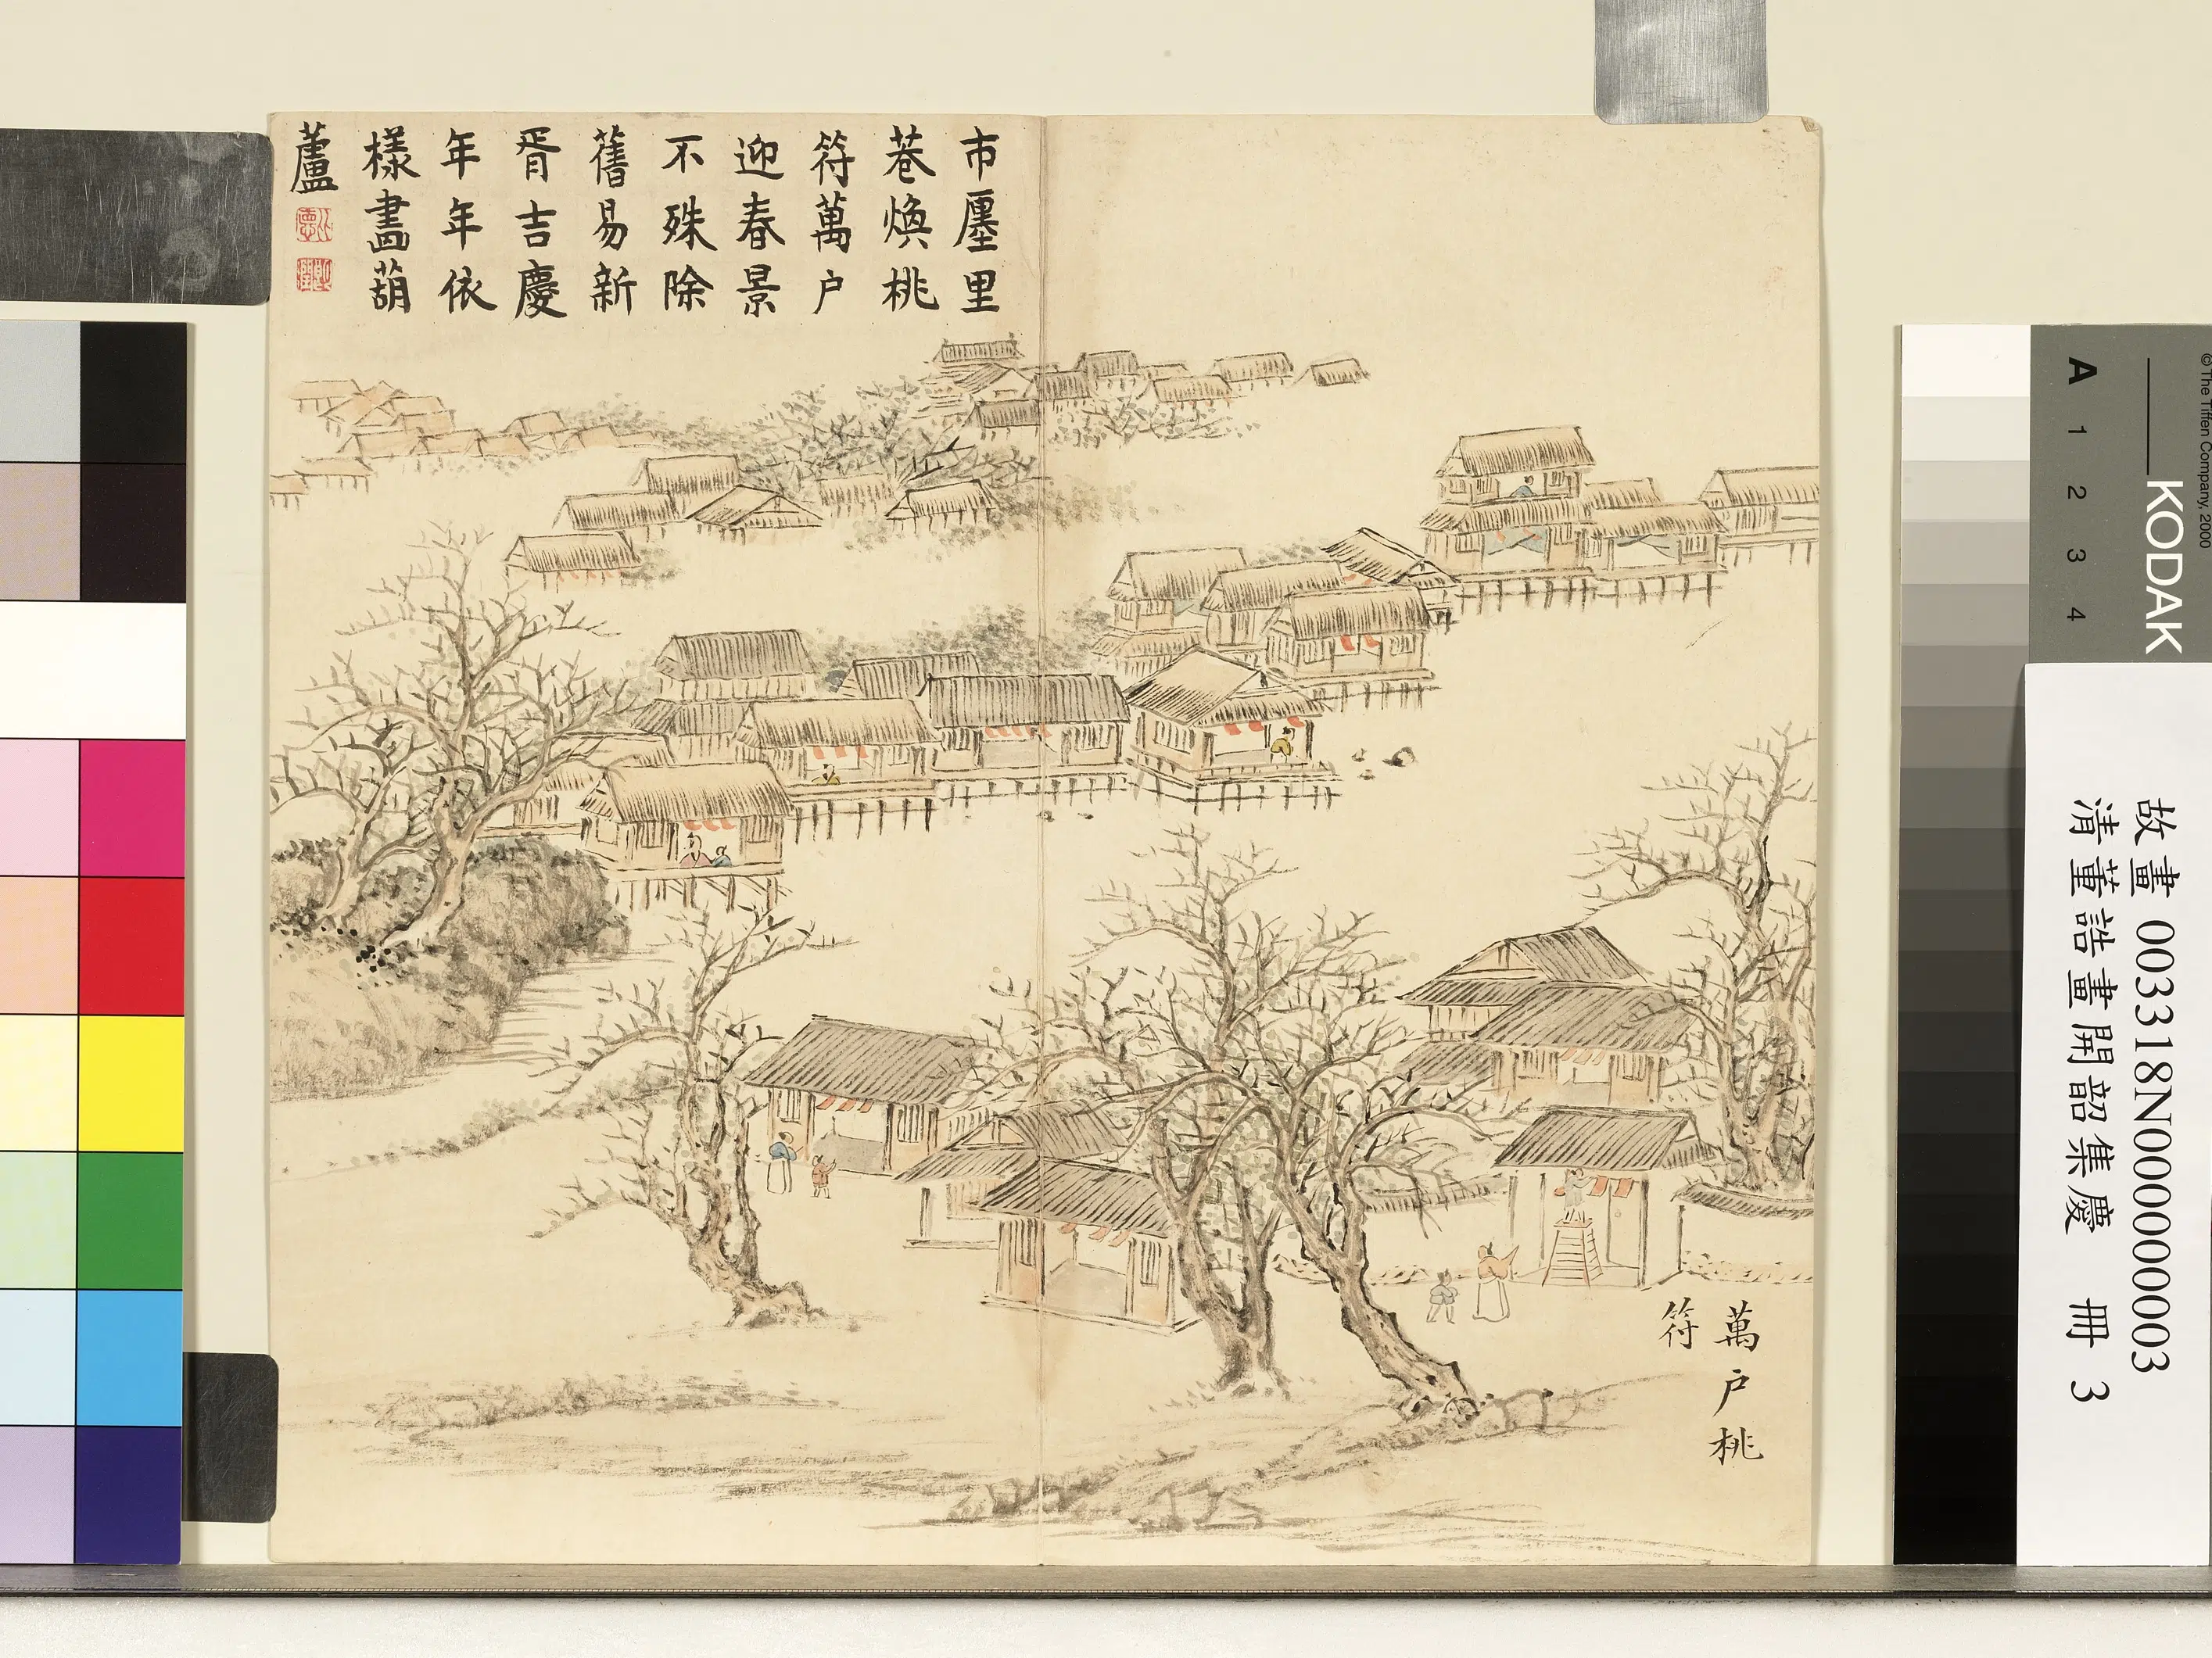 市廛里
巷煥桃
符萬户
迎春景
不殊除
舊易新
胥吉慶
年年依
樣畫葫
蘆
萬户桃
符
故畫 003318N000000003
清董誥畫開韶集慶 冊 3
KODAK
A 1 2 3 4
© The Tiffen Company, 2000